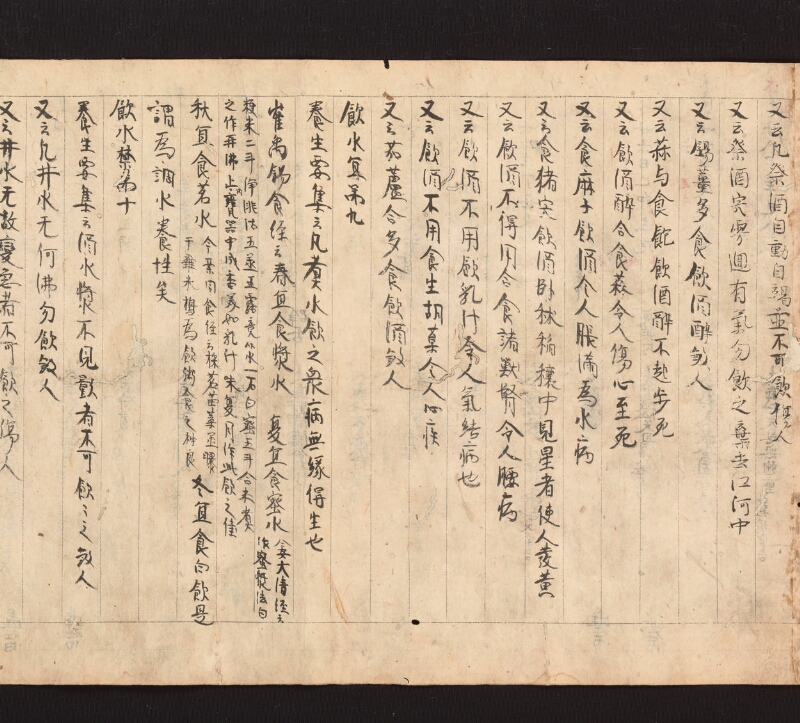 又云凡祭酒自動自竭並不可飲煞人
又云祭酒肉零迴有氣勿飲之棄去江河中
又云錫薑多食飲酒醉煞人
又云蒜与食飽飲酒醉不起步死
又云飲酒醉合食蒜令人傷心至死
又云食麻子飲酒令人脹滿為水病
又云食猪宍飲酒卧秫稲穰中見星者使人發黄
又云飲酒不得用合食諸獣腎令人腰病
又云飲酒不用飲乳汁令人氣結病也
又云飲酒不用食生胡菜令人心疾
又云葫蘆合多食飲酒煞人
飲水宜第九
養生要集云凡煮水飲之衆病無縁得生也
崔禹錫食経云春宜食漿水 夏宜食蜜水 案大清経云作蜜漿法白
粳米二斗浄洮汰五蒸五露竟以水一石白蜜五斗合米煮
之作再沸止瓷器中成香美如乳汁味夏月作此飲之佳
秋宜食茗水 冬宜食白飲是
謂為調水養性矣
飲水禁第十
養生要集云酒水漿不見影者不可飲々之煞人
又云凡井水无何沸勿飲煞人
又云井水无故變急者不可飲之傷人